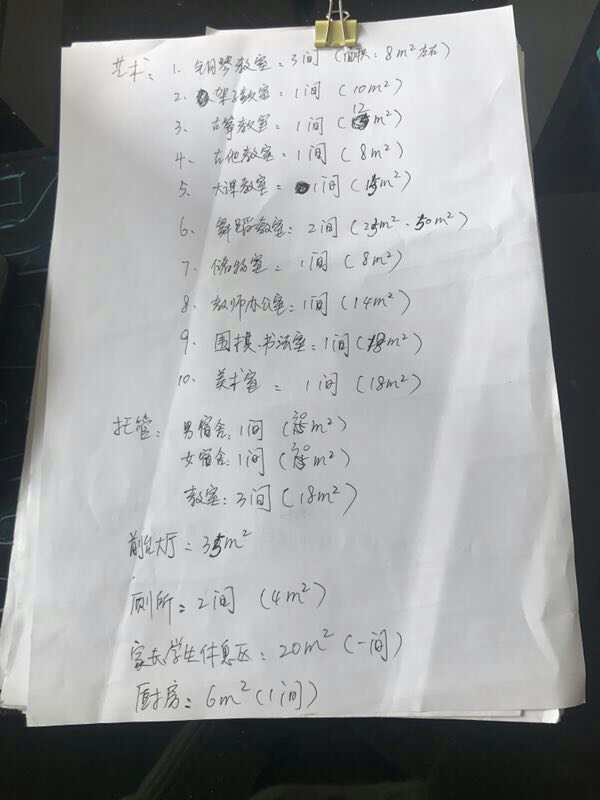 艺术: 1. 钢琴教室: 3间 (面积: 8m²左右)
2. 架子教室: 1间 (10m²)
3. 古筝教室: 1间 (12m²)
4. 吉他教室: 1间 (8m²)
5. 大课教室: 1间 (15m²)
6. 舞蹈教室: 2间 (25m²、50m²)
7. 储物室: 1间 (8m²)
8. 教师办公室: 1间 (14m²)
9. 围棋.书法室: 1间 (18m²)
10. 美术室: 1间 (18m²)
托管: 男宿舍: 1间 (20m²)
女宿舍: 1间 (20m²)
教室: 3间 (18m²)
前台大厅: 35m²
厕所: 2间 (4m²)
家长学生休息区: 20m² (一间)
厨房: 6m² (1间)